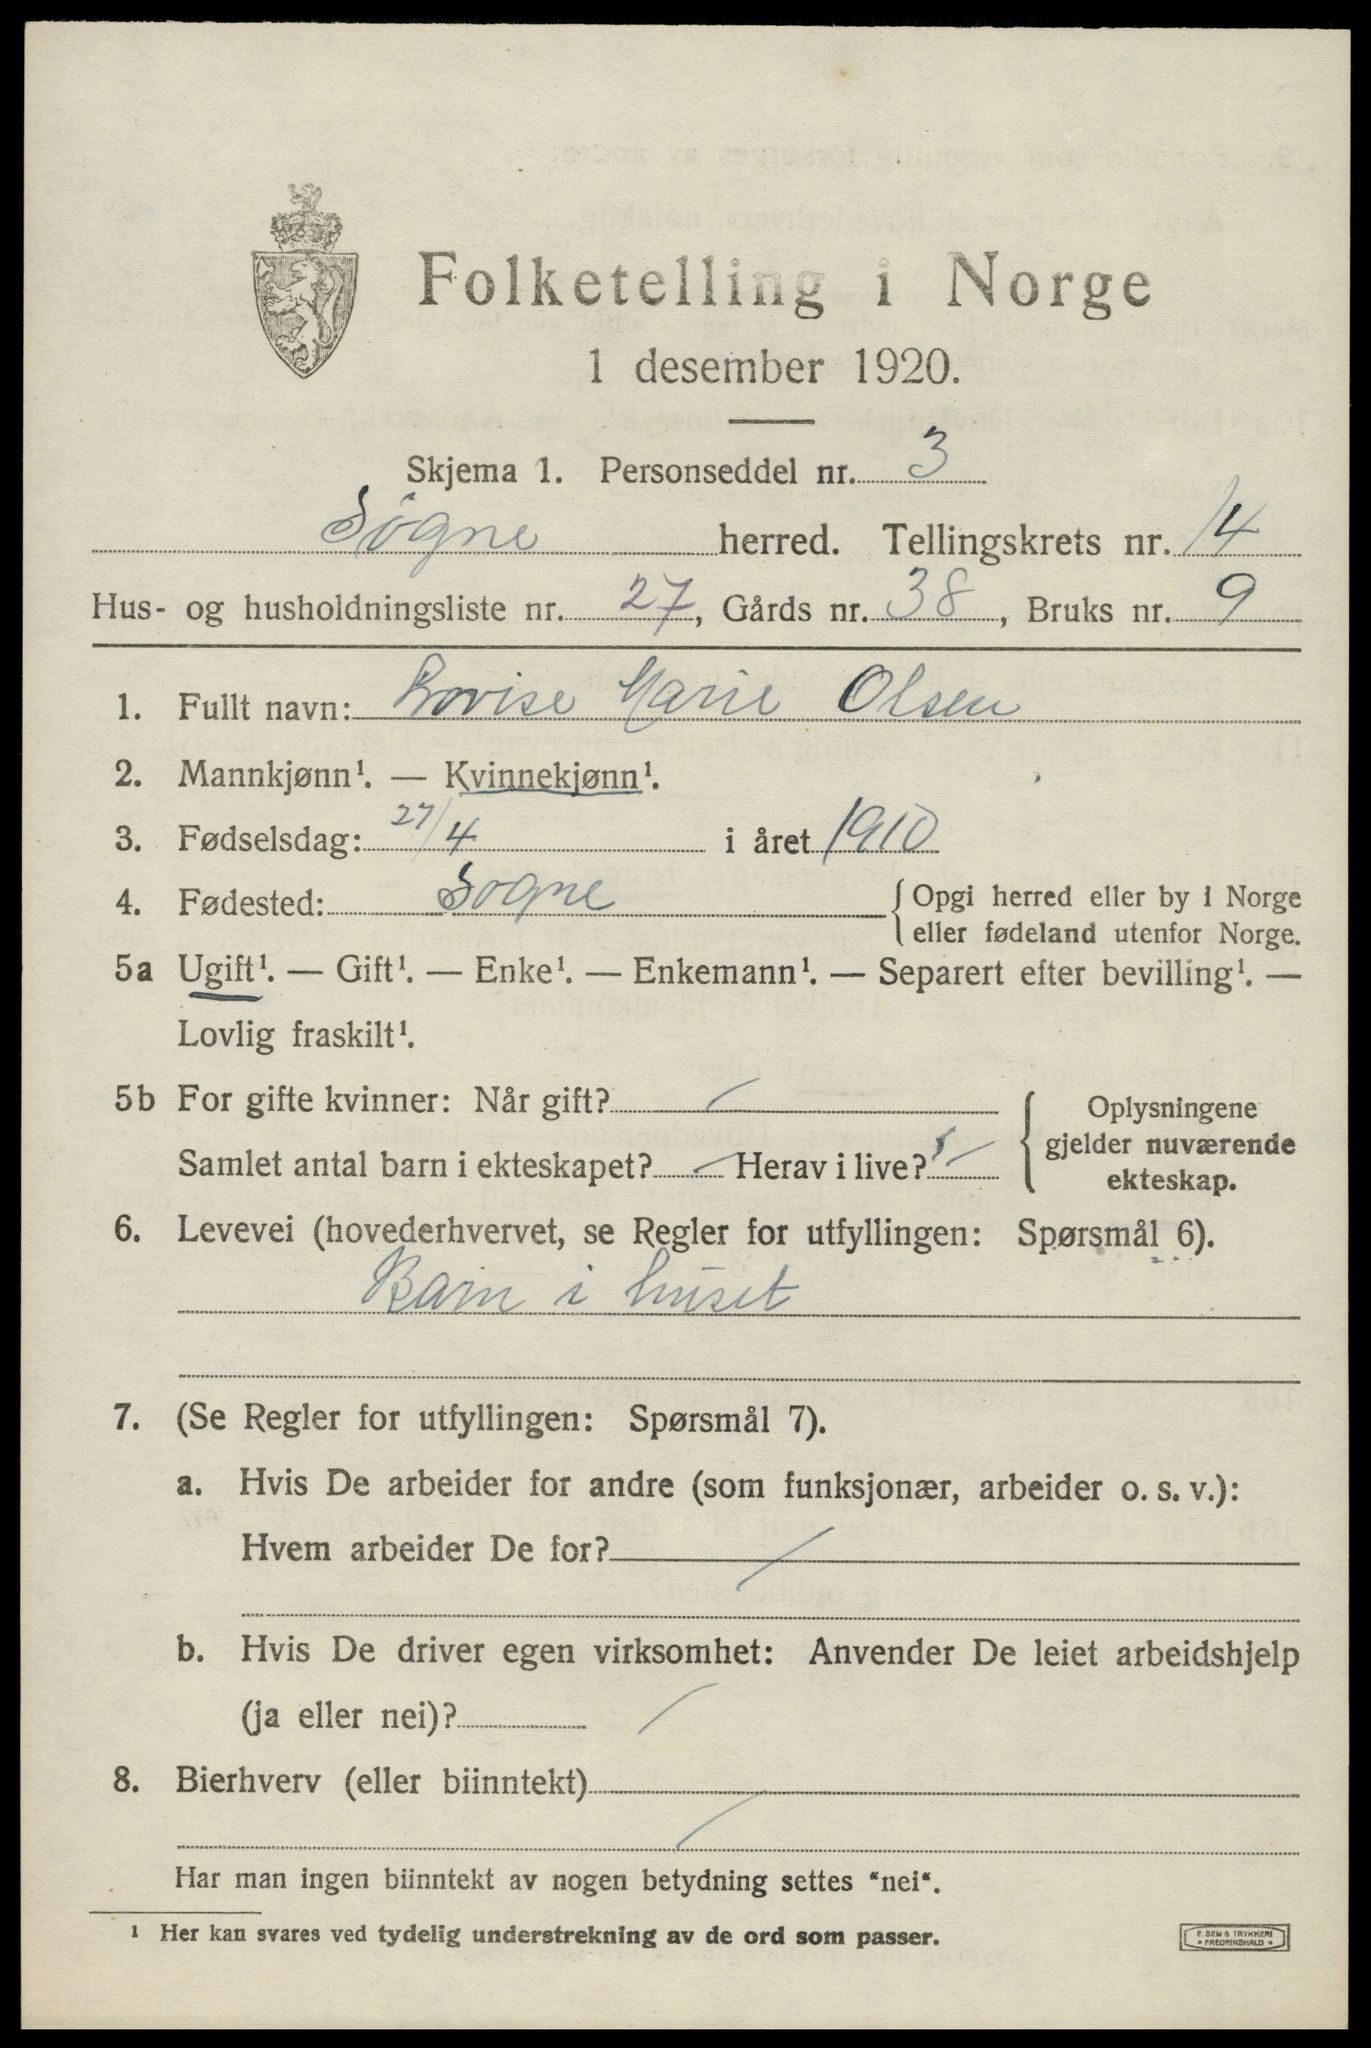 Folketelling i Norge
1 desember 1920.
Skjema 1. Personseddel nr. 3
Søgne herred. Tellingskrets nr. 14
Hus- og husholdningsliste nr. 27, Gårds nr. 38, Bruks nr. 9
1. Fullt navn: Lovise Marie Olsen
2. Mannkjønn¹. — Kvinnekjønn¹.
3. Fødselsdag: 27/4 i året 1910
4. Fødested: Sogne { Opgi herred eller by i Norge
eller fødeland utenfor Norge.
5a Ugift¹. — Gift¹. — Enke¹. — Enkemann¹. — Separert efter bevilling¹. —
Lovlig fraskilt¹.
5b For gifte kvinner: Når gift? /
Samlet antal barn i ekteskapet? / Herav i live? /
{ Oplysningene
gjelder nuværende
ekteskap.
6. Levevei (hovederhvervet, se Regler for utfyllingen: Spørsmål 6).
Barn i huset
7. (Se Regler for utfyllingen: Spørsmål 7).
a. Hvis De arbeider for andre (som funksjonær, arbeider o. s. v.):
Hvem arbeider De for? /
b. Hvis De driver egen virksomhet: Anvender De leiet arbeidshjelp
(ja eller nei)? /
8. Bierhverv (eller biinntekt)
/
Har man ingen biinntekt av nogen betydning settes "nei".
¹ Her kan svares ved tydelig understrekning av de ord som passer.
E. SEM'S TRYKKERI
• FREDRIKSHALD •